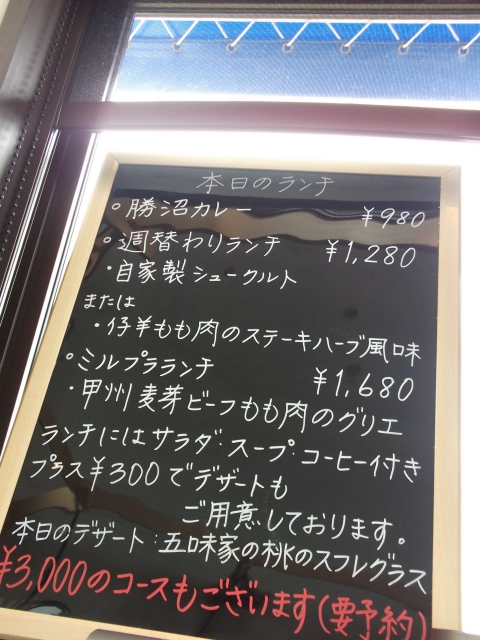 本日のランチ
○勝沼カレー ¥980
○週替わりランチ ¥1,280
・自家製シュークルト
または
・仔羊もも肉のステーキハーブ風味
○ミルプラランチ ¥1,680
・甲州麦芽ビーフもも肉のグリエ
ランチにはサラダ・スープ・コーヒー付き
プラス¥300でデザートも
ご用意しております。
本日のデザート:五味家の桃のスフレグラス
¥3,000のコースもございます(要予約)